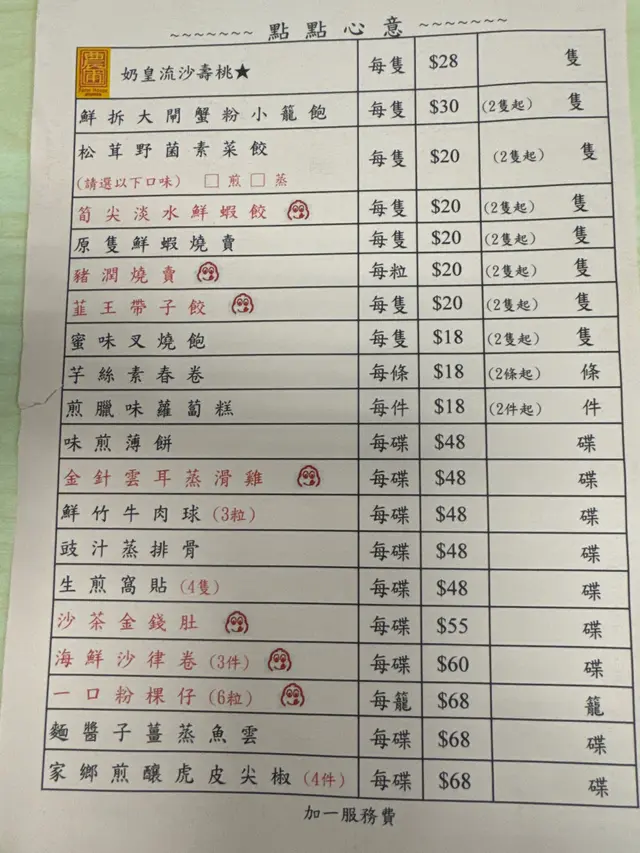 ~~~~~~~ 點點心意 ~~~~~~~
奶皇流沙壽桃★ 每隻 $28 隻
鮮拆大閘蟹粉小籠飽 每隻 $30 (2隻起) 隻
松茸野菌素菜餃 每隻 $20 (2隻起) 隻
(請選以下口味) □ 煎 □ 蒸
筍尖淡水鮮蝦餃 每隻 $20 (2隻起) 隻
原隻鮮蝦燒賣 每隻 $20 (2隻起) 隻
豬潤燒賣 每粒 $20 (2隻起) 隻
韮王帶子餃 每隻 $20 (2隻起) 隻
蜜味叉燒飽 每隻 $18 (2隻起) 隻
芋絲素春卷 每條 $18 (2條起) 條
煎臘味蘿蔔糕 每件 $18 (2件起) 件
味煎薄餅 每碟 $48 碟
金針雲耳蒸滑雞 每碟 $48 碟
鮮竹牛肉球(3粒) 每碟 $48 碟
豉汁蒸排骨 每碟 $48 碟
生煎窩貼(4隻) 每碟 $48 碟
沙茶金錢肚 每碟 $55 碟
海鮮沙律卷(3件) 每碟 $60 碟
一口粉粿仔(6粒) 每籠 $68 籠
麵醬子薑蒸魚雲 每碟 $68 碟
家鄉煎釀虎皮尖椒(4件) 每碟 $68 碟
加一服務費